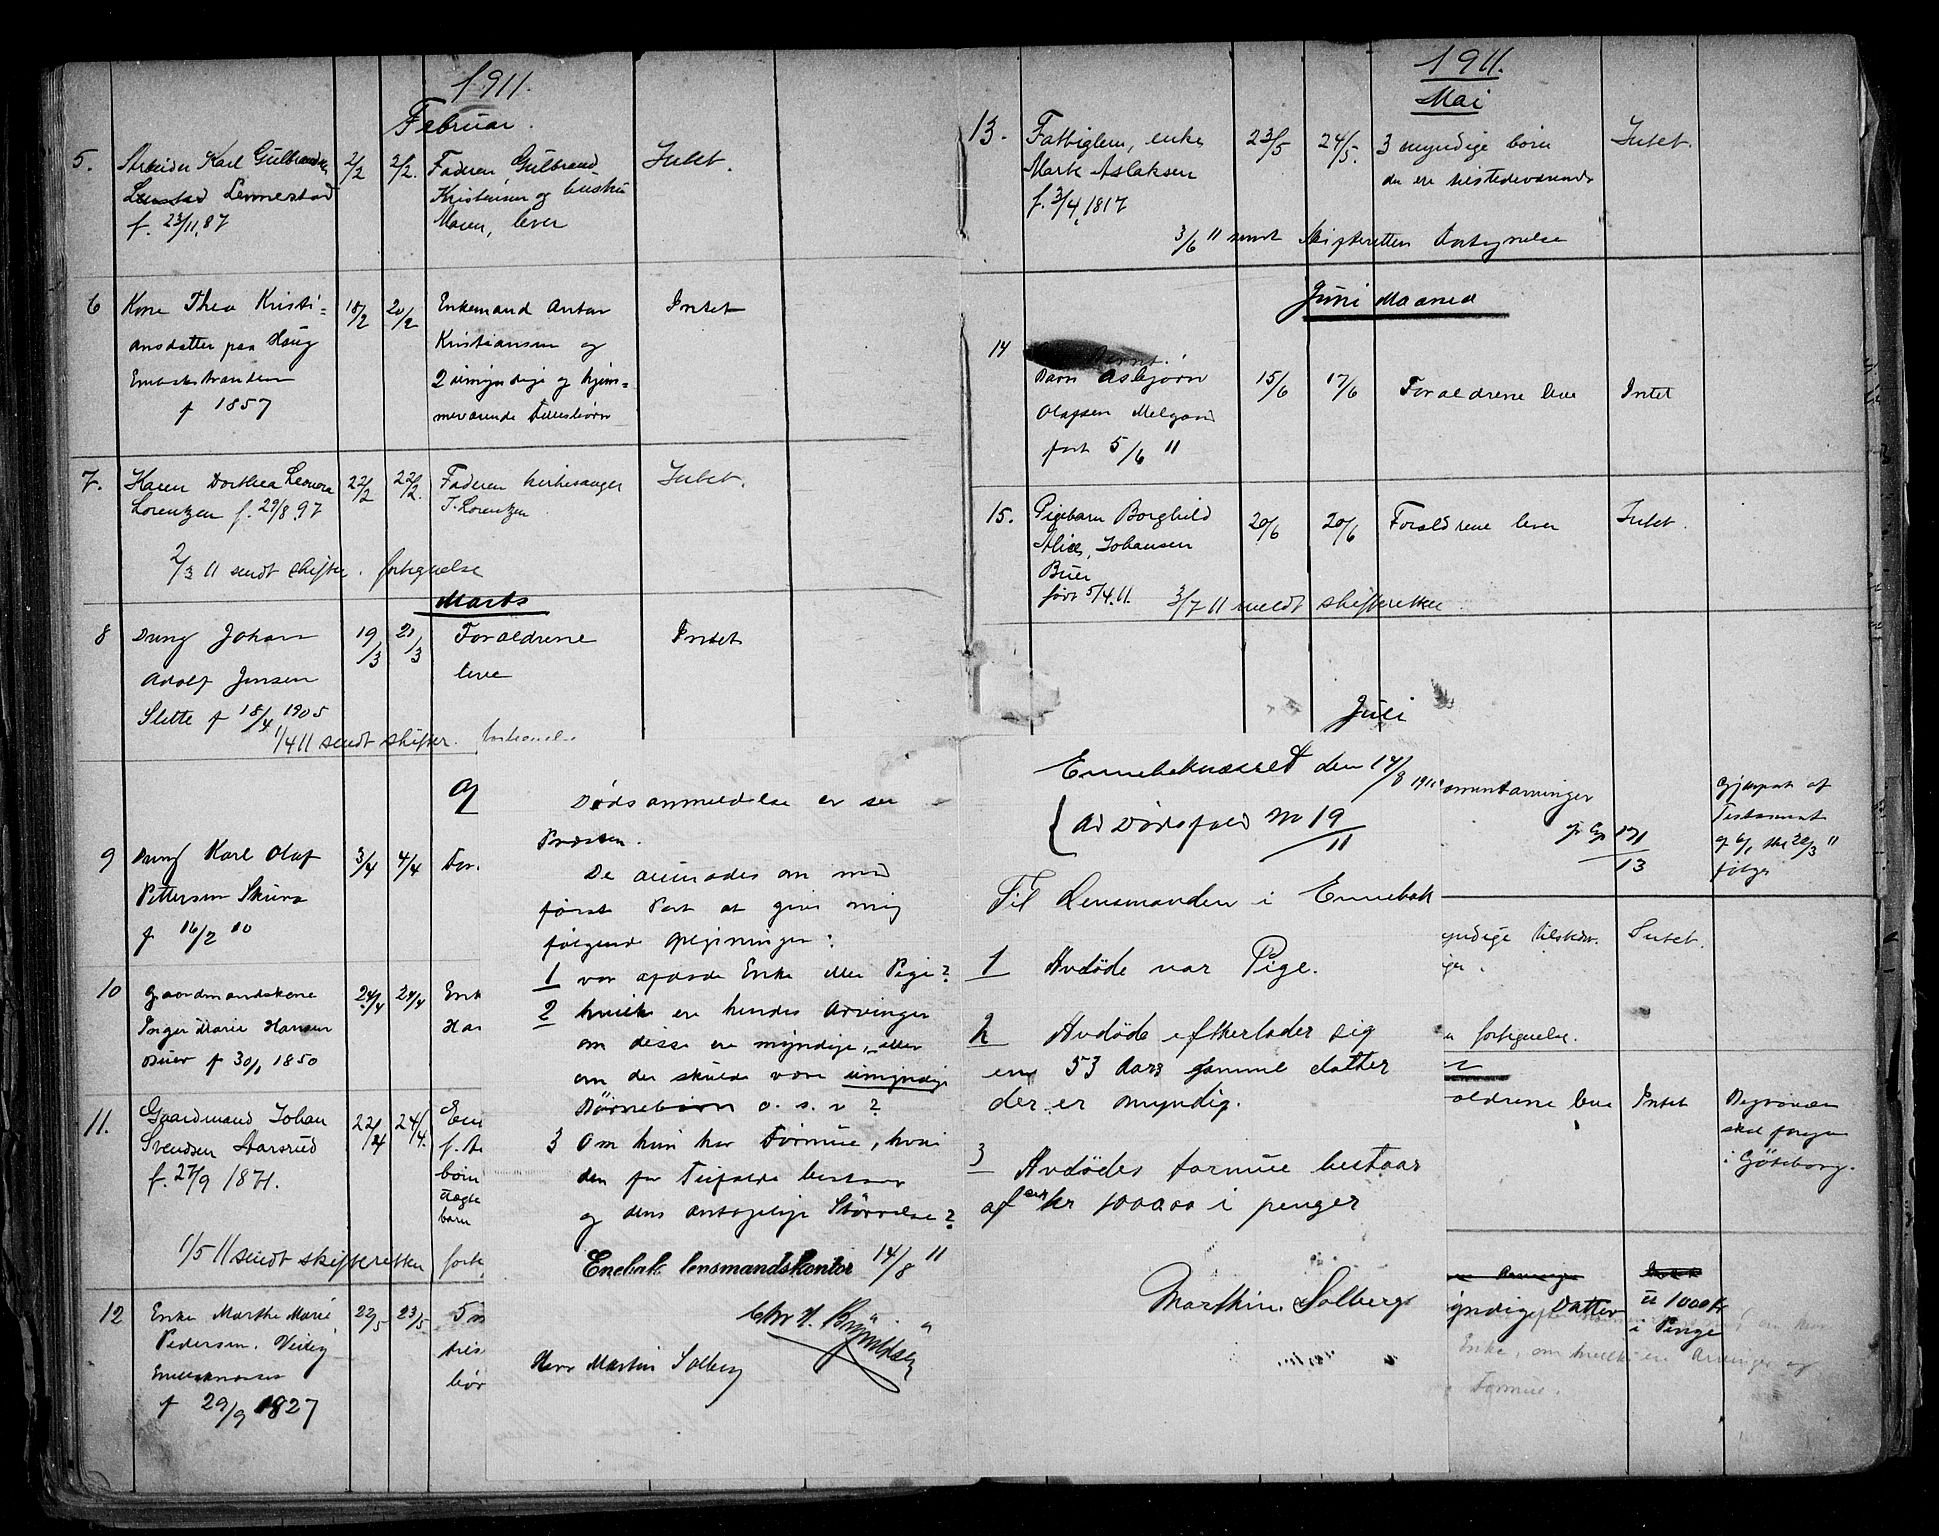 1911.
Februar.
5. Arbeider Karl Gulbrandsen 2/2 2/2. Faderen Gulbrand Intet.
Lennestad Kristiansen og hustru
f. 23/11.87 Maren, lever
6 Kone Thea Kristi= 18/2 20/2 Enkemand Anton Intet
ansdatter paa Haug Kristiansen og
2 umyndige og hjem=
f 1857 meværende Fællesbørn
7. Karen Dorthea Leonora 22/2 22/2. Faderen kirkesanger Intet.
Lorentzen f. 29/8 97 J. Lorentzen
2/3 11 sendt skifter. fortegnelse
Marts
8 Dreng Johan 19/3 21/3 Forældrene Intet
Adolf Jensen leve
Slette f 18/4 1905
1/4 11 sendt skifter. fortegnelse
9 Dreng Karl Olaf 3/4 4/4 For.
Pettersen Skure
f 16/2 10
10 Gaardmandskone 24/4 24/4 Enk
Inger Marie Hansen Han
Buer f 30/1 1850
11. Gaardmand Johan 22/4 24/4.
Svendsen Aarsrud
f. 27/9 1871. børn
ægte
barn
1/5 11 sendt skifteretten forte
12 Enke Marthe Marie 22/5 23/5 5 m
Pedersen. Veileg
bør
f 29/9 1827
Dødsanmeldelse er seet
Præsten.
De anmodes om med
først Post at give mig
følgende oplysninger:
1 var afdøde Enke eller Pige?
2 hvilke er hendes Arvinger
om disse er myndige, eller
om der skulde være umyndige
Børnebørn o. s. v?
3 Om hun har Formue, hvori
den for Tilfælde bestaar
og dens antagelige Størrelse?
Enebak lensmandskontor 14/8 11
Herr Martin Solberg
1911.
Mai
13. Fattiglem, enke 23/5 24/5. 3 myndige børn Intet.
Marte Aslaksen der er tilstedeværende
f. 3/4, 1817
3/6 11 sendt skifteretten fortegnelse
Juni Maaned
14
Barn Asbjørn 15/6 17/6 Forældrene leve Intet
Olafsen Melgaard
født 5/6 11
15. Pigebarn Borghild 20/6 20/6 Forældrene lever Intet.
Alice, Johansen
Buer
født 5/4.11. 3/7 11 meldt skifteretten
Juli
Ennebaknesset den 17/8 1911
Ad Dødsfald No 19/11
Til Lensmanden i Ennebak
1 Avdöde var Pige.
2 Avdöde efterlader sig
en 53 Aars gammel datter
der er myndig.
3 Avdödes formue bestaar
af cir kr 1000.00 i penger
Marthin Solberg
Gjenpart af
Testament
13
følger
yndige tilstedev. Intet.
fortegnelse.
ældrene leve Intet Begravelsen
skal foregaa
i Göteborg.
yndige Datter 1000 Kr
i Penge
Enke, om hvilke er Arvinger og
Formue.